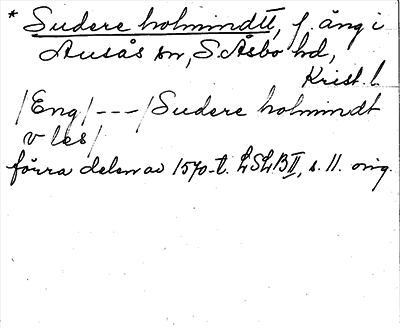 * Sudere holmindtt, f. äng i
Ausås sn, S. Åsbo hd,
Krist. l.
/Eng/ --- /Sudere holmindt
v les/
förra delen av 1570-t. LSLB II, s. 11. orig.